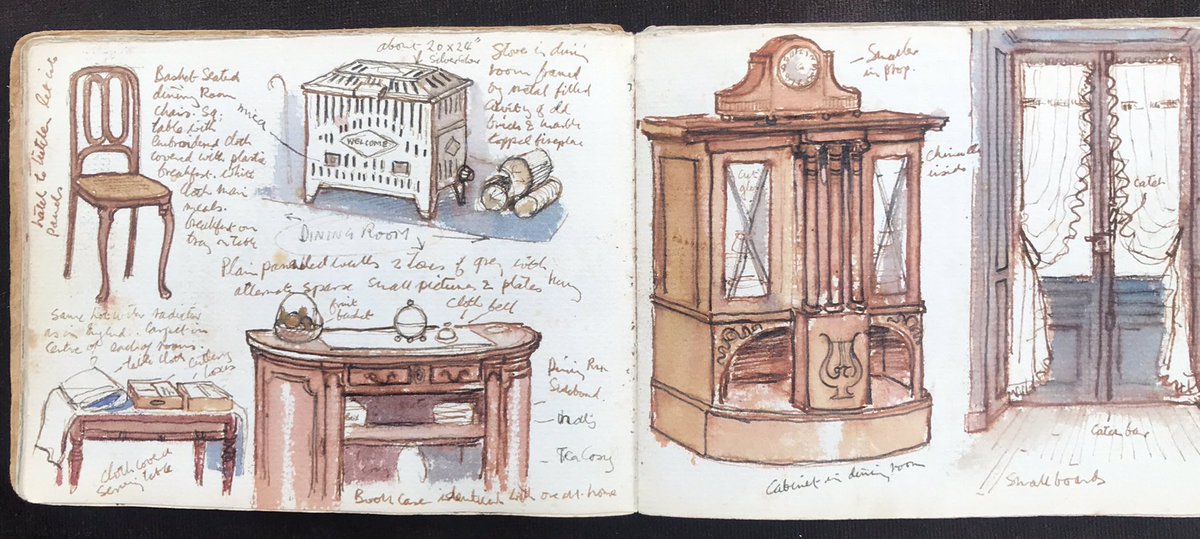 Basket Seated
dining Room
Chairs. Sq.
table with
Embroidered cloth
covered with plastic
breakfast. White
cloth main
meals.
breakfast on
tray on table
mica
about 20x24"
Silver
WELCOME
Stove in dining
room framed
by metal filled
Cavity of old
bricks & marble
fireplace
DINING ROOM
Plain panelled walls 2 tones of grey with
alternate sparse small pictures & plates hung
fruit
basket
Cloth bell
Same hot water radiator
as in England. Carpet in
Centre of each of rooms.
table cloth
Cutlery
boxes
Cloth covered
Serving table
Dining Rm
Sideboard
mats
Tea Cosy
Book case identical with one at home
Smaller
in prop.
Cut
glass
inside
Cabinet in dining room
Catch
Catch bar
Small boards